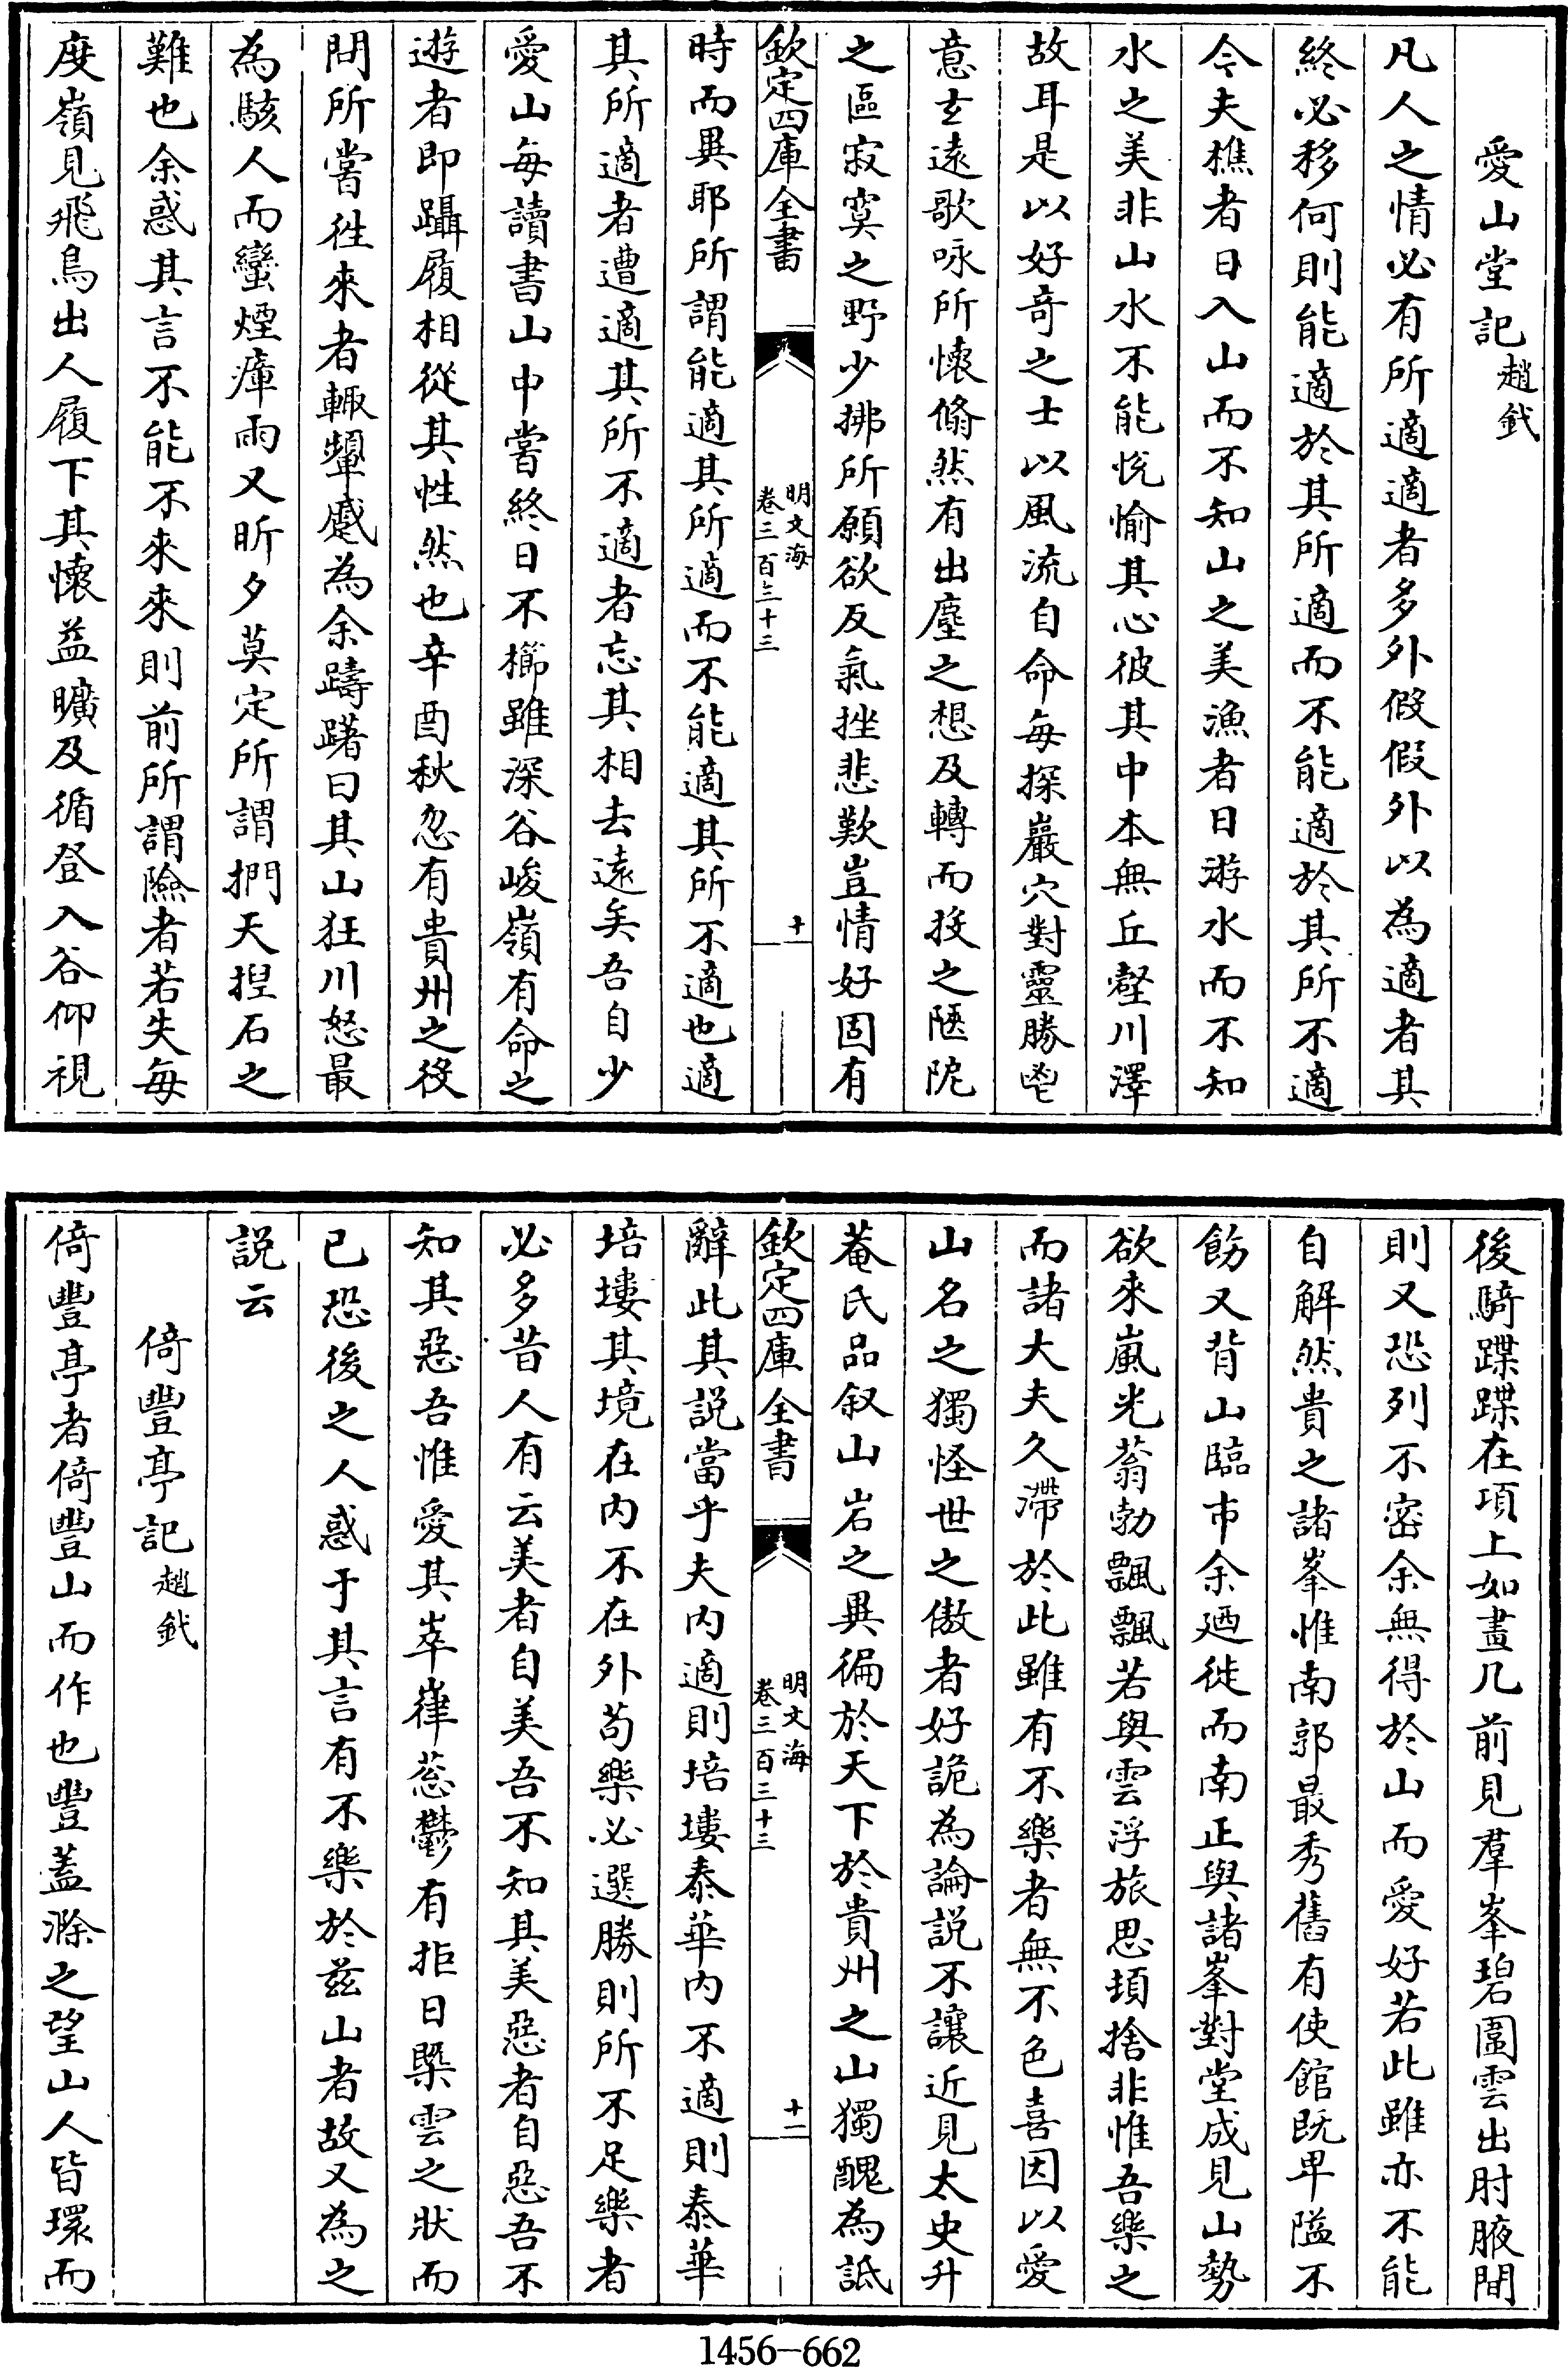 愛山堂記趙釴
凡人之情必有所適適者多外假假外以為適者其
終必移何則能適於其所適而不能適於其所不適
今夫樵者日入山而不知山之美漁者日游水而不知
水之美非山水不能悦愉其心彼其中本無丘壑川澤
故耳是以好奇之士以風流自命每探巖穴對靈勝鬯
意玄遠歌咏所懷翛然有出塵之想及轉而投之陋阨
之區寂寞之野少拂所願欲反氣挫悲歎豈情好固有
欽定四庫全書
明文海
卷三百三十三
十
時而異耶所謂能適其所適而不能適其所不適也適
其所適者遭適其所不適者忘其相去遠矣吾自少
愛山每讀書山中嘗終日不櫛雖深谷峻嶺有命之
遊者即躡履相從其性然也辛酉秋忽有貴州之役
問所嘗徃來者輒顰蹙為余躊躇曰其山狂川怒最
為駭人而蠻煙瘴雨又昕夕莫定所謂捫天揑石之
難也余惑其言不能不來來則前所謂險者若失每
度嶺見飛鳥出人履下其懷益曠及循登入谷仰視
後騎蹀蹀在項上如畫几前見羣峯碧圍雲出肘腋間
則又恐列不密余無得於山而愛好若此雖亦不能
自解然貴之諸峯惟南郭最秀舊有使館既卑隘不
飭又背山臨市余廼徙而南正與諸峯對堂成見山勢
欲來嵐光蓊勃飄飄若與雲浮旅思頓捨非惟吾樂之
而諸大夫久滯於此雖有不樂者無不色喜因以愛
山名之獨怪世之傲者好詭為論説不讓近見太史升
菴氏品叙山岩之異徧於天下於貴州之山獨醜為詆
欽定四庫全書
明文海
卷三百三十三
十一
辭此其説當乎夫内適則培塿泰華内不適則泰華
培塿其境在内不在外苟樂必選勝則所不足樂者
必多昔人有云美者自美吾不知其美惡者自惡吾不
知其惡吾惟愛其崒嵂葱鬱有拒日槩雲之狀而
已恐後之人惑于其言有不樂於兹山者故又為之
説云
倚豐亭記趙釴
倚豐亭者倚豐山而作也豐蓋滁之望山人皆環而
1456-662